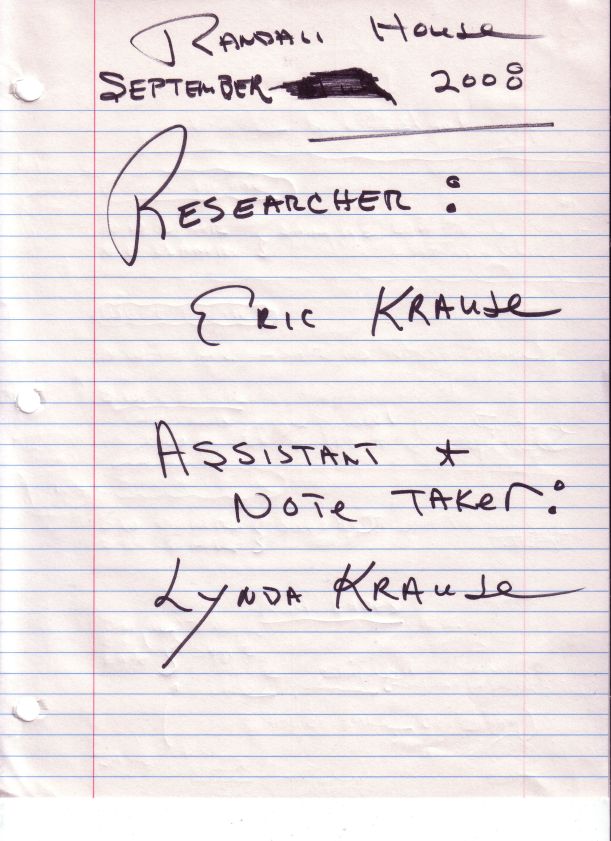 RANDALL HOUSE
SEPTEMBER 2008
RESEARCHER:
ERIC KRAUSE
ASSISTANT +
NOTE TAKER:
LYNDA KRAUSE